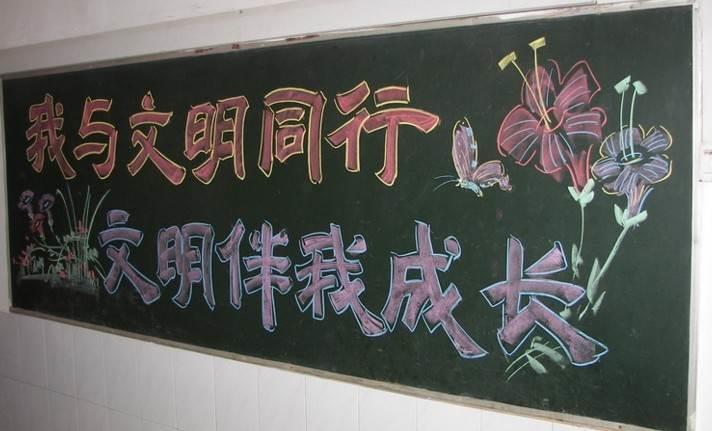 我与文明同行
文明伴我成长